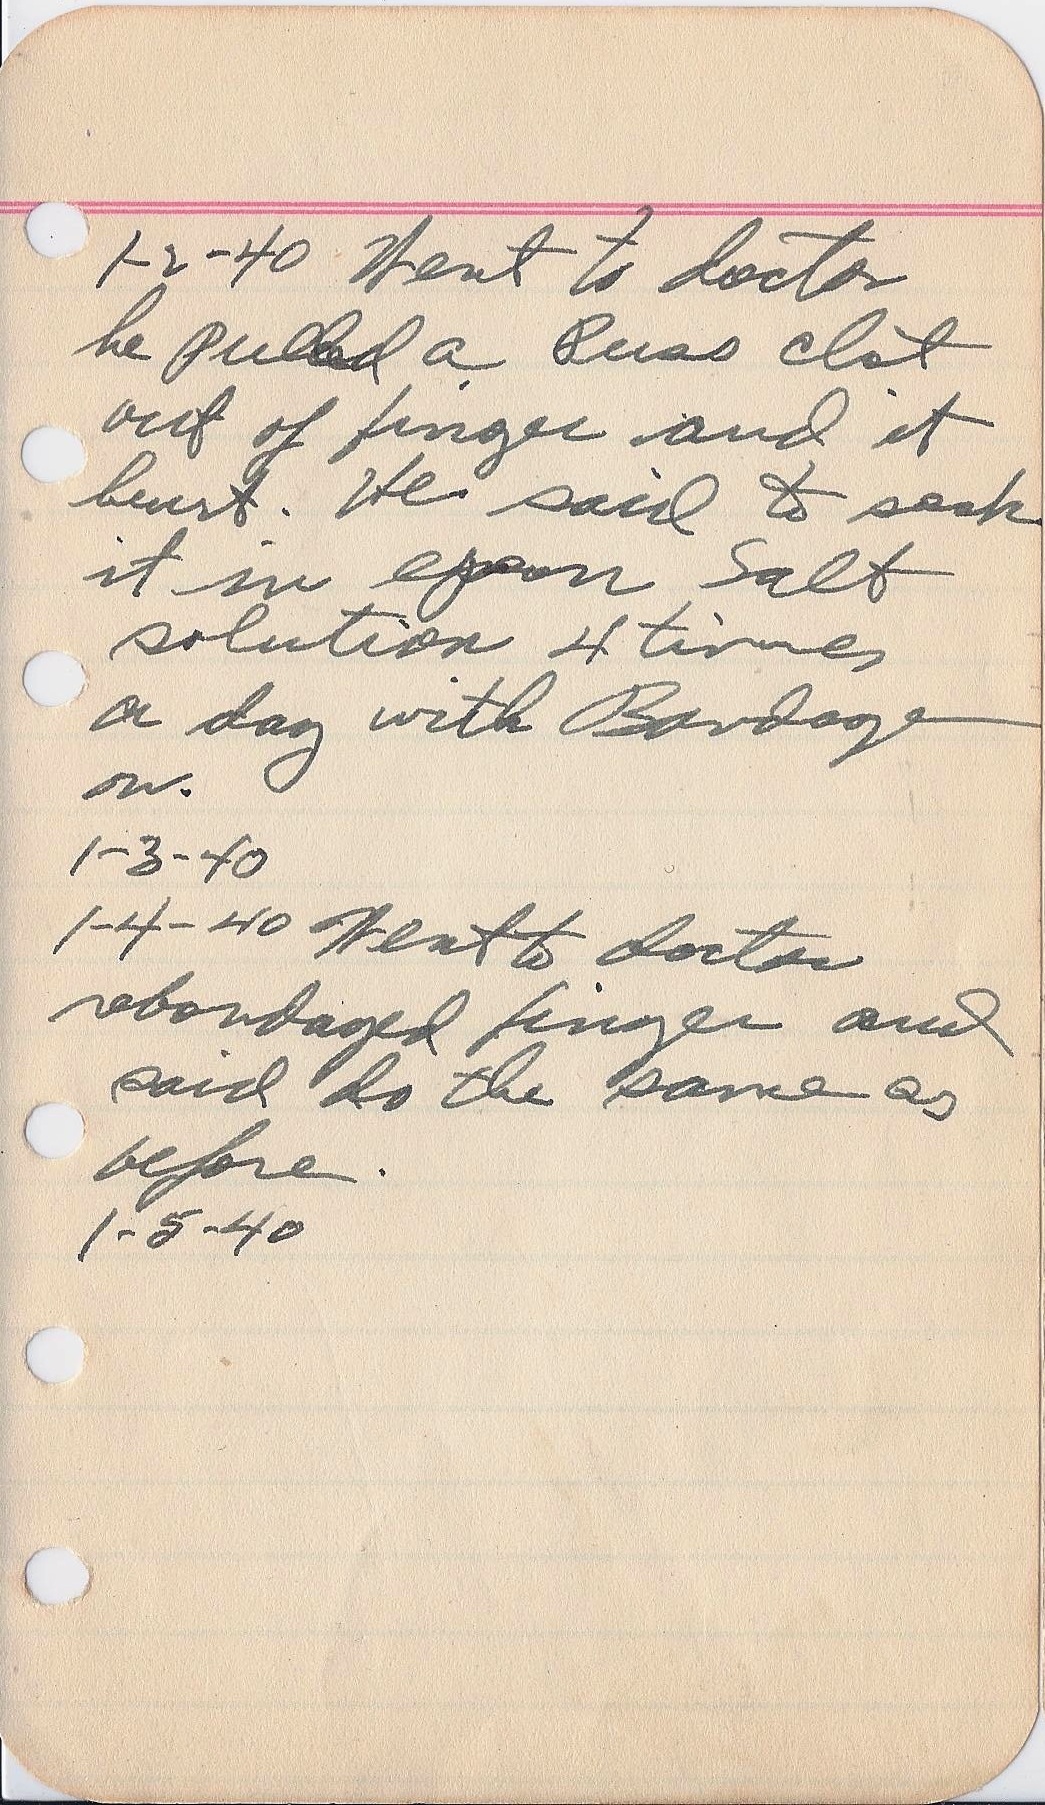 1-2-40 Went to doctor
he pulled a Puss clot
out of finger and it
hurt. He said to soak
it in epson Salt
solution 4 times
a day with Bandage
on.
1-3-40
1-4-40 Went to doctor
rebandaged finger and
said do the same as
before.
1-5-40